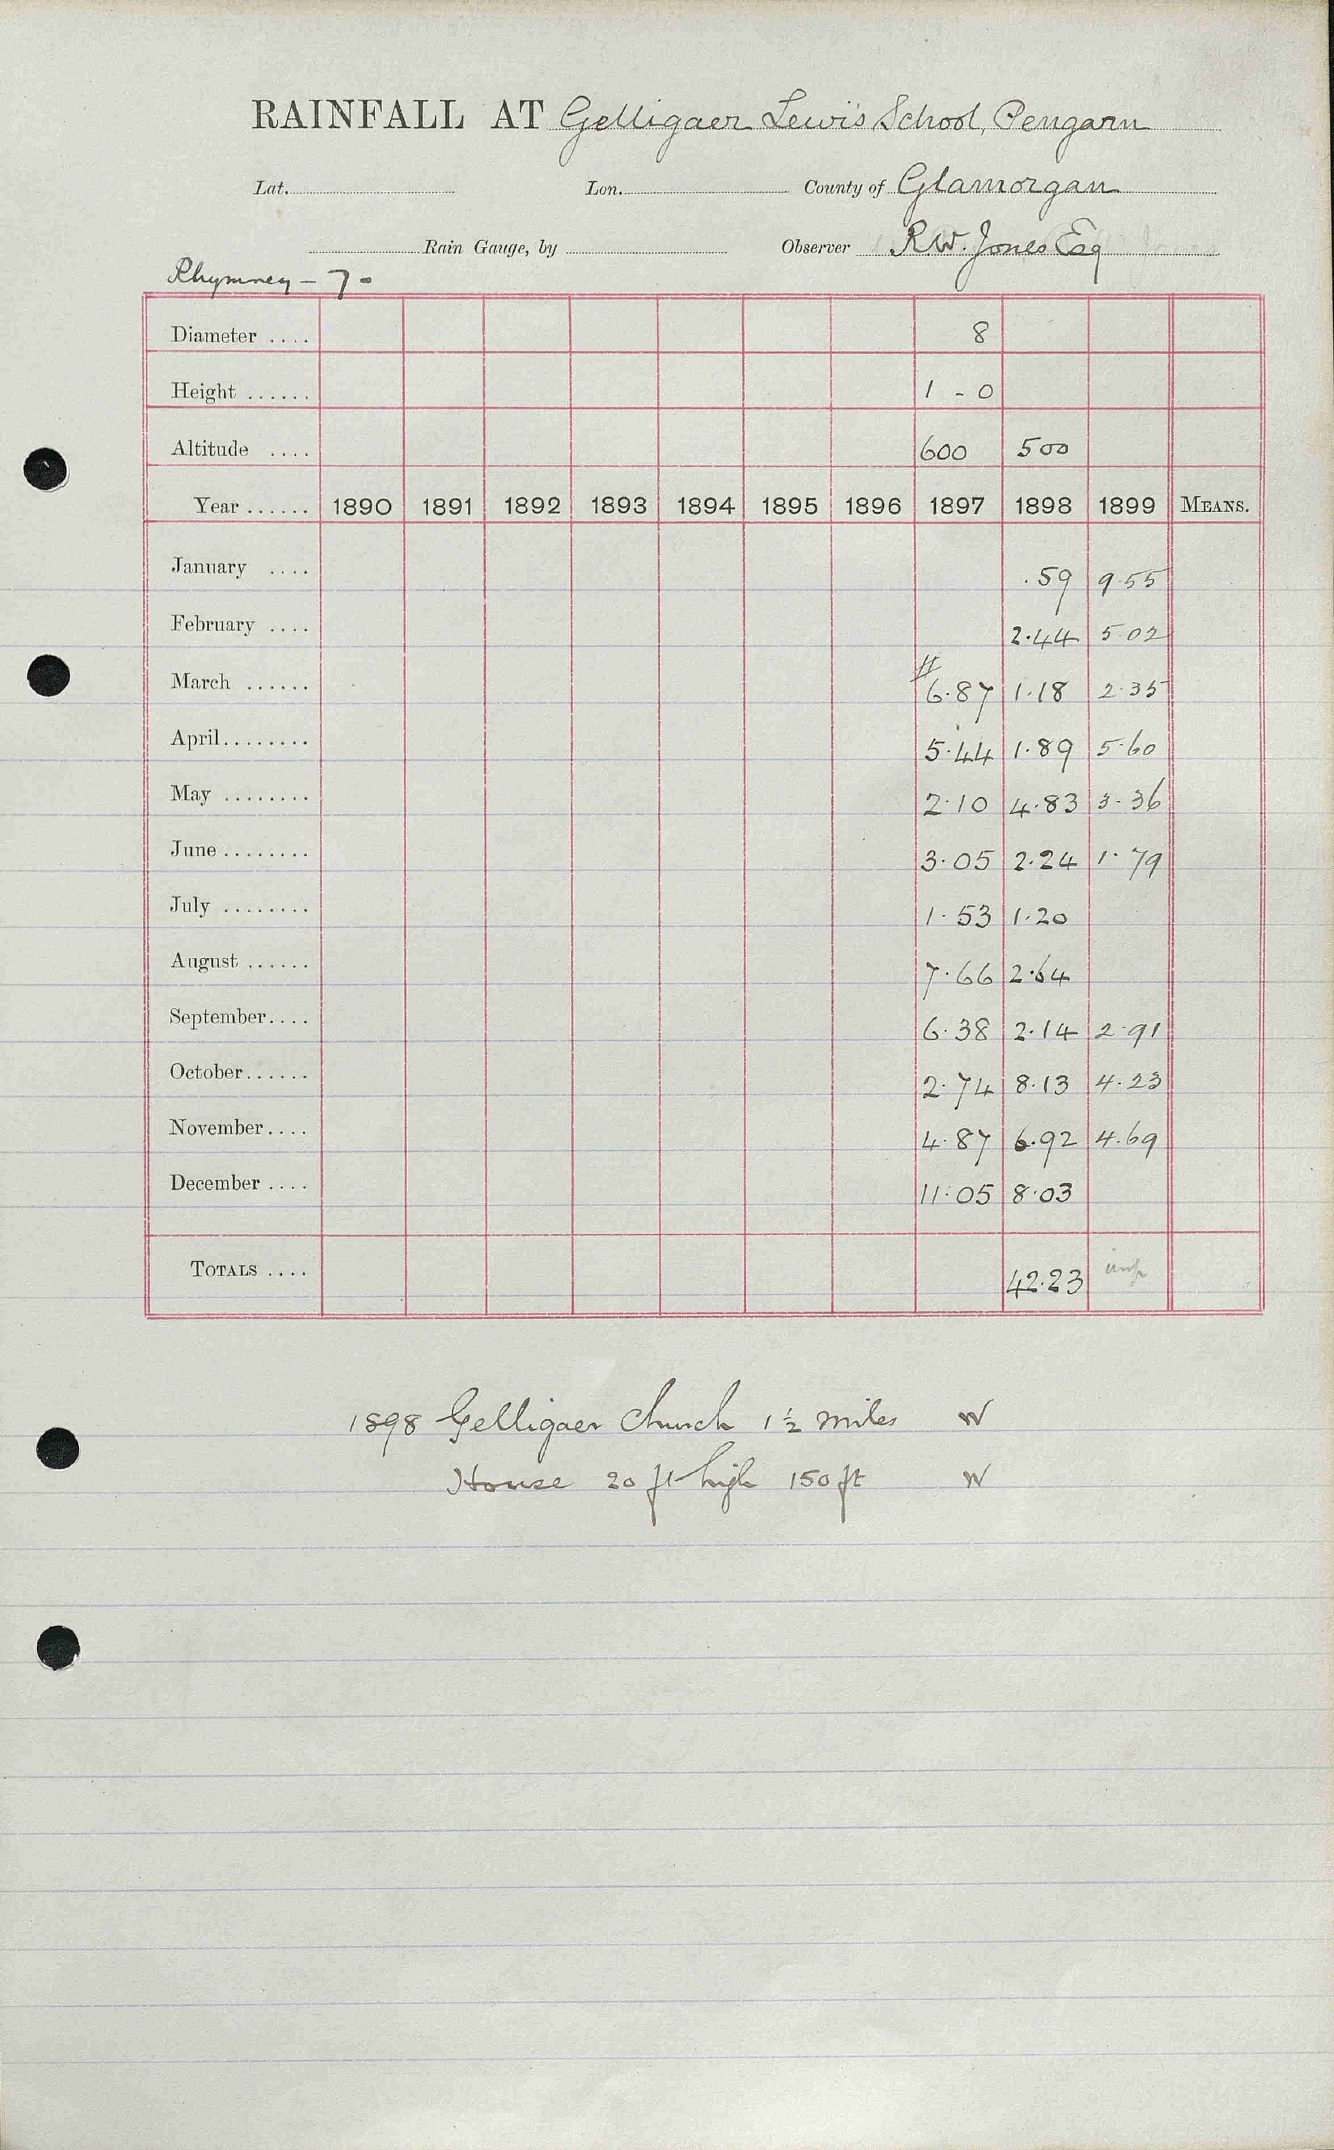 RAINFALL AT Gelligaer Lewis School, Pengarn
Lat. Lon. County of Glamorgan
Rain Gauge, by Observer R.W. Jones Esq
Rhymney - 7 -
Diameter .... 8
Height ...... 1 - 0
Altitude .... 600 500
Year ...... 1890 1891 1892 1893 1894 1895 1896 1897 1898 1899 MEANS.
January .... .59 9.55
February .... 2.44 5.02
March ...... # 6.87 1.18 2.35
April ........ 5.44 1.89 5.60
May ........ 2.10 4.83 3.36
June ........ 3.05 2.24 1.79
July ........ 1.53 1.20
August ...... 7.66 2.64
September .... 6.38 2.14 2.91
October ...... 2.74 8.13 4.23
November .... 4.87 6.92 4.69
December .... 11.05 8.03
TOTALS .... 42.23 imp
1898 Gelligaer Church 1½ miles W
House 20 ft high 150 ft W